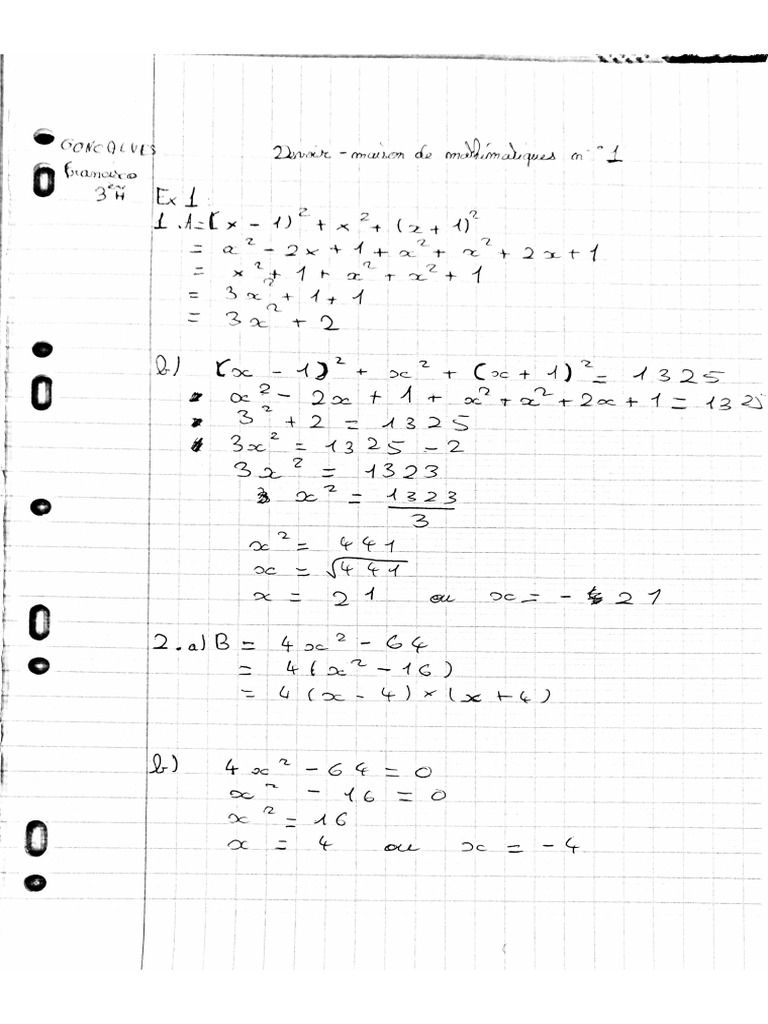 GONCALVES
Devoir-maison de mathématiques n°1
Francisco
3ème H
Ex 1
1. A=(x - 1)² + x² + (x + 1)²
= x² - 2x + 1 + x² + x² + 2x + 1
= x² + 1 + x² + x² + 1
= 3x² + 1 + 1
= 3x² + 2
b) (x - 1)² + x² + (x + 1)² = 1325
x² - 2x + 1 + x² + x² + 2x + 1 = 1325
3² + 2 = 1325
3x² = 1325 - 2
3x² = 1323
x² = 1323/3
x² = 441
x = √441
x = 21 ou x = - 21
2. a) B = 4x² - 64
= 4(x² - 16)
= 4(x - 4) × (x + 4)
b) 4x² - 64 = 0
x² - 16 = 0
x² = 16
x = 4 ou x = - 4